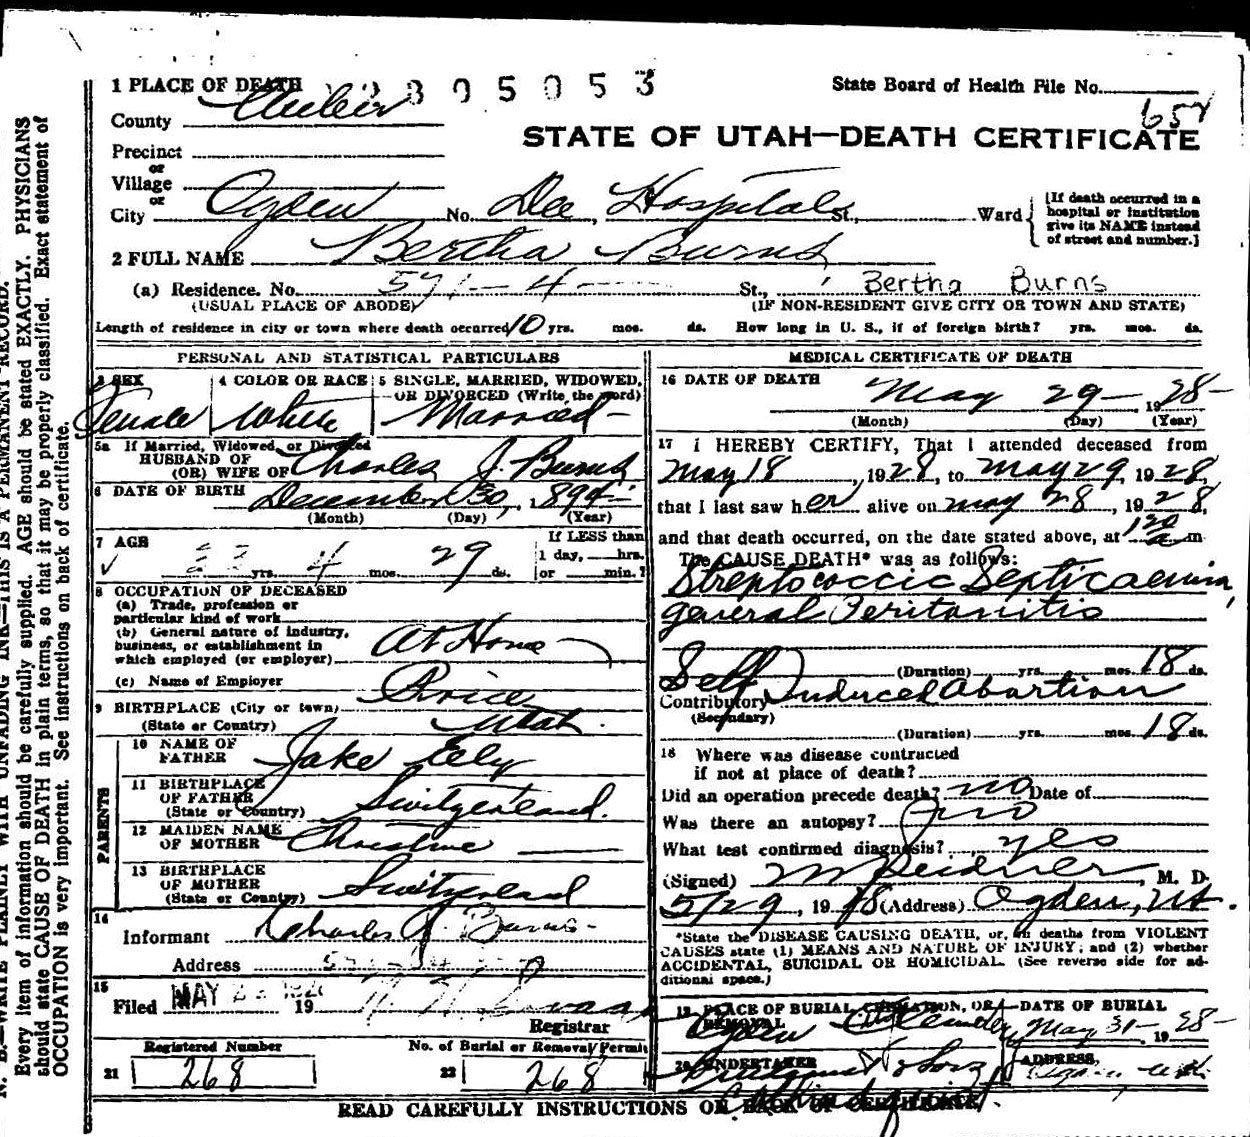 1 PLACE OF DEATH 2305053 State Board of Health File No.
County
657
STATE OF UTAH—DEATH CERTIFICATE
Precinct
or
Village
or
City Ogden No. Dee Hospital St., Ward
[If death occurred in a
hospital or institution
give its NAME instead
of street and number.]
2 FULL NAME Bertha Burns
(a) Residence. No. 571-4 St., Bertha Burns
(USUAL PLACE OF ABODE) (IF NON-RESIDENT GIVE CITY OR TOWN AND STATE)
Length of residence in city or town where death occurred 10 yrs. mos. ds. How long in U. S., if of foreign birth? yrs. mos. ds.
PERSONAL AND STATISTICAL PARTICULARS
3 SEX 4 COLOR OR RACE 5 SINGLE, MARRIED, WIDOWED,
OR DIVORCED (Write the word)
Female White Married
5a If Married, Widowed, or Divorced
HUSBAND OF
(OR) WIFE OF Charles J. Burns
6 DATE OF BIRTH December 30, 1894
(Month) (Day) (Year)
7 AGE If LESS than
1 day, hrs.
yrs. 4 mos. 29 ds. or min.?
8 OCCUPATION OF DECEASED
(a) Trade, profession or
particular kind of work
(b) General nature of industry,
business, or establishment in
which employed (or employer) At Home
(c) Name of Employer
9 BIRTHPLACE (City or town) Price
(State or Country) Utah.
PARENTS
10 NAME OF
FATHER Jake
11 BIRTHPLACE
OF FATHER
(State or Country) Switzerland.
12 MAIDEN NAME
OF MOTHER Christine
13 BIRTHPLACE
OF MOTHER
(State or Country) Switzerland
14
Informant Charles J. Burns
Address
15
Filed MAY 19
Registrar
Registered Number No. of Burial or Removal Permit
21 268 22 268
MEDICAL CERTIFICATE OF DEATH
16 DATE OF DEATH May 29 1928
(Month) (Day) (Year)
17 I HEREBY CERTIFY, That I attended deceased from
May 18, 1928, to May 29, 1928,
that I last saw her alive on May 28, 1928,
and that death occurred, on the date stated above, at 120 a m
The CAUSE DEATH* was as follows:
Streptococcic Septicaemia,
general Peritonitis
(Duration) yrs. mos. 18 ds.
Contributory Self Induced Abortion
(Secondary)
(Duration) yrs. mos. 18 ds.
18 Where was disease contracted
if not at place of death?
Did an operation precede death? no Date of
Was there an autopsy? no
What test confirmed diagnosis? yes
(Signed) M. D.
5/29, 1928 (Address) Ogden, Ut.
*State the DISEASE CAUSING DEATH, or, in deaths from VIOLENT
CAUSES state (1) MEANS AND NATURE OF INJURY; and (2) whether
ACCIDENTAL, SUICIDAL OR HOMICIDAL. (See reverse side for ad-
ditional space.)
19 PLACE OF BURIAL, CREMATION, OR REMOVAL DATE OF BURIAL
Ogden City Cemetery May 31 1928
20 UNDERTAKER ADDRESS
READ CAREFULLY INSTRUCTIONS ON BACK OF CERTIFICATE.
N. B.—WRITE PLAINLY WITH UNFADING INK—THIS IS A PERMANENT RECORD.
Every item of information should be carefully supplied. AGE should be stated EXACTLY. PHYSICIANS
should state CAUSE OF DEATH in plain terms, so that it may be properly classified. Exact statement of
OCCUPATION is very important. See instructions on back of certificate.